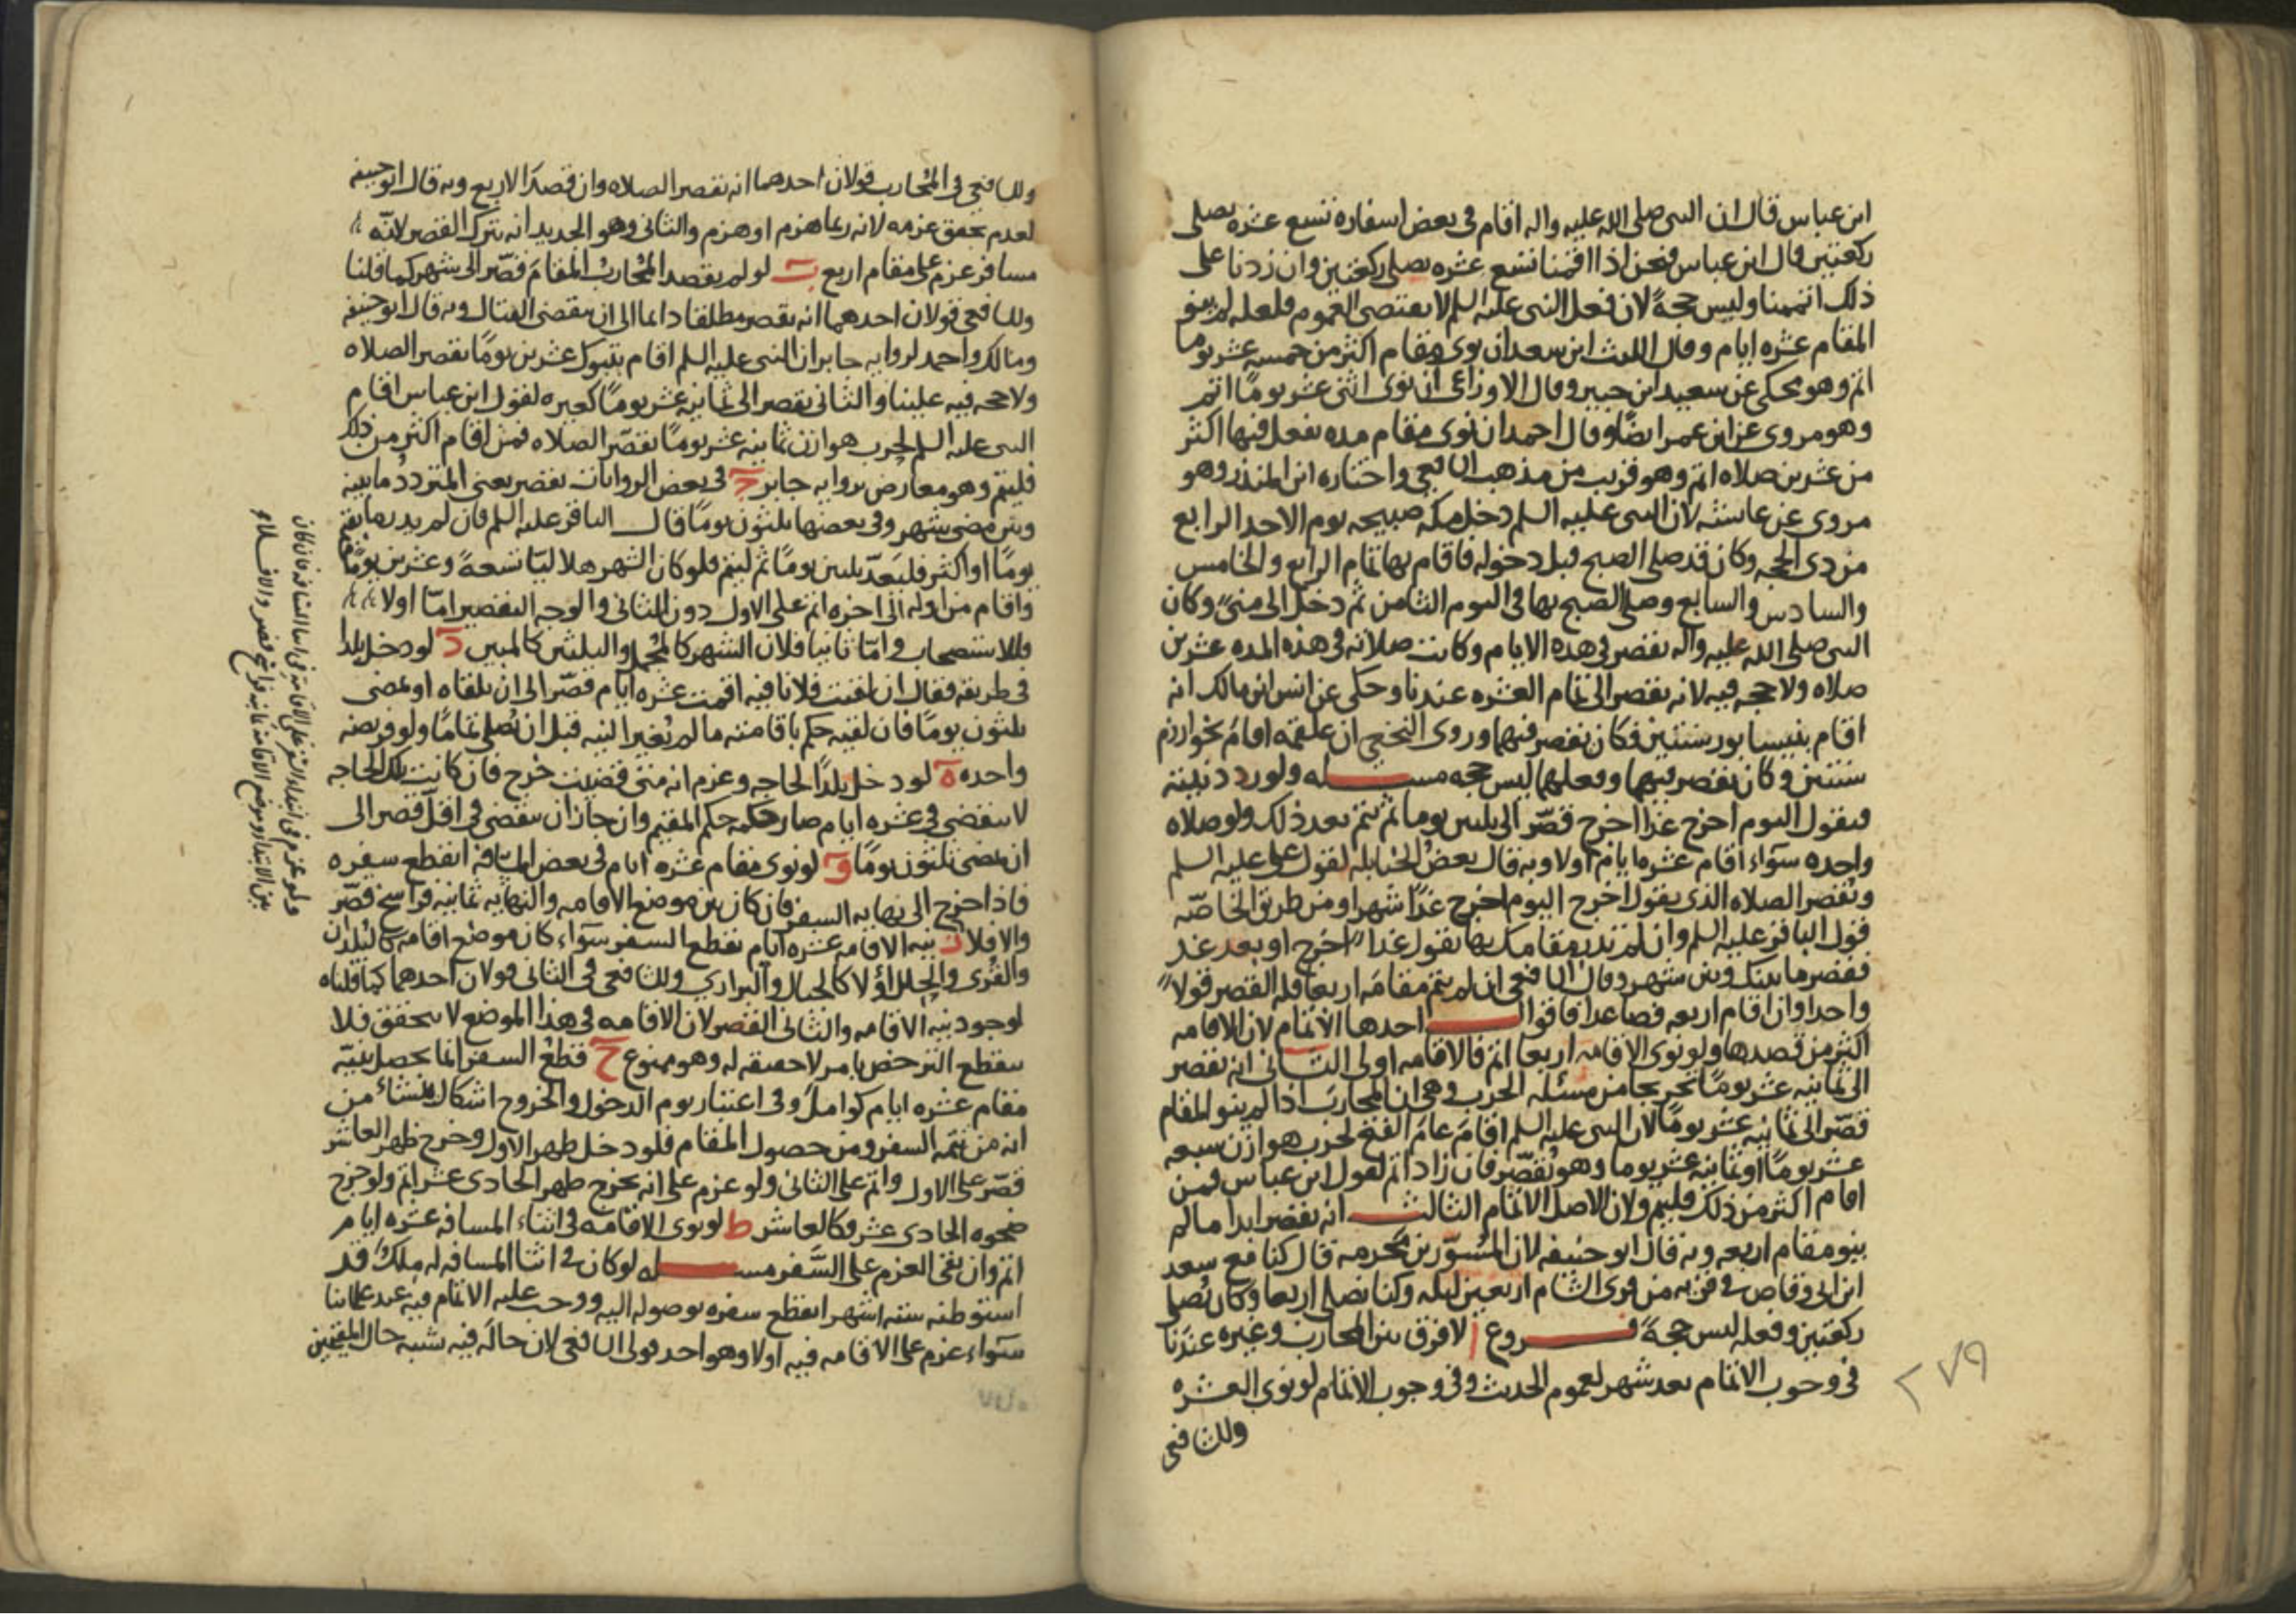 ابن عباس قال ان النبى صلى الله عليه واله اقام فى بعض اسفاره تسع عشره يصلى
ركعتين قال ابن عباس فنحن اذا اقمنا تسع عشره نصلى ركعتين وان زدنا على
ذلك اتممنا وليس حجةً لان فعل النبى عليه السلم لا يقتضى العموم فلعله لم ينو
المقام عشره ايام وقال الليث ابن سعد ان نوى مقام اكثر من خمسه عشر يوما
اتم وهو محكى عن سعيد ابن جبير وقال الاوزاعى ان نوى اثنى عشر يومًا اتم
وهو مروى عن ابن عمر ايضًا وقال احمد ان نوى مقام مده يفعل فيها اكثر
من عشرين صلاه اتم وهو قريب من مذهب الشافعى واختاره ابن المنذر وهو
مروى عن عائشه لان النبى عليه السلم دخل مكه صبيحه يوم الاحد الرابع
من ذى الحجه وكان قد صلى الصبح قبل دخوله فاقام بها تمام الرابع والخامس
والسادس والسابع وصلى الصبح بها فى اليوم الثامن ثم دخل الى منىً وكان
النبى صلى الله عليه واله يقصر فى هذه الايام وكانت صلاته فى هذه المده عشرين
صلاه ولا حجه فيه لانه يقصر الى تمام العشره عندنا وحكى عن انس ابن مالك انه
اقام بنيسابور سنتين فكان يقصر فيهما وروى النخعى ان علقمه اقام بخوارزم
سنتين وكان يقصر فيهما وفعلهما ليس حجه مسـله ولو ردد نيته
فيقول اليوم اخرج غدا اخرج قصّر الى ثلثين يوما ثم يتم بعد ذلك ولو صلاه
واحده سوآء اقام عشره ايام اولا وبه قال بعض الحنابله لقول على عليه السلم
ويقصر الصلاه الذى يقول اخرج اليوم اخرج غدًا شهرا ومن طريق الخاصّه
قول الباقر عليه السلم وان لم تدر مقامك بها تقول غدًا اخرج او بعد غد
فقصر ما بينك وبين شهر وقال الشافعى ان لم يتم مقامه اربعا فله القصر قولاً
واحدا وان اقام اربعه فصاعدا فاقوال احدها الاتمام لان الاقامه
اكثر من قصدها ولو نوى الاقامه اربعا اتم فالاقامه اولى الثانى انه يقصر
الى ثمانيه عشر يومًا تخريجا من مسئله الحرب وهى ان المحارب اذا لم ينو المقام
قصّر الى ثمانيه عشر يومًا لان النبى عليه السلم اقام عام الفتح لحرب هوازن سبعه
عشر يومًا او ثمانيه عشر يوما وهو يُقصّر فان زاد اتم لقول ابن عباس فمن
اقام اكثر من ذلك فليتم ولان الاصل الاتمام الثالث انه يقصر ابدا ما لم
ينو مقام اربعه وبه قال ابو حنيفه لان المُسَوّر بن مخرمه قال كنا مع سعد
ابن ابى وقاص فى قريه من قرى الشام اربعين ليله وكنا نصلى اربعا وكان يُصلى
ركعتين وفعله ليس حجةً فـروع ا لا فرق بين المحارب وغيره عندنا
فى وجوب الاتمام بعد شهر لعموم الحديث وفى وجوب الاتمام لو نوى العشره
وللشافعى
٢٧٩
وللشافعى فى المُحارب قولان احدهما انه يقصر الصلاه وان قصد الاربع وبه قال ابو حنيفه
لعدم تحقق عزمه لانه ربما هزم او هزم والثانى وهو الجديد انه يترك القصر لانّه
مسافر عزم على مقام اربع ب لو لم يقصد المُحاربُ المُقام قصّر الى شهر كما قلنا
وللشافعى قولان احدهما انه يقصر مطلقا دائما الى ان ينقضى القتال وبه قال ابو حنيفه
ومالك واحمد لروايه جابر ان النبى عليه السلم اقام بتبوك عشرين يومًا يقصر الصلاه
ولا حجه فيه علينا والثانى يقصر الى ثمانيه عشر يومًا كغيره لقول ابن عباس اقام
النبى عليه السلم لحرب هوازن ثمانيه عشر يومًا يقصّر الصلاه فمن اقام اكثر من ذلك
فليتم وهو معارض بروايه جابر ج فى بعض الروايات يقصر يعنى المتردد ما بينه
وبين مضى شهر وفى بعضها ثلثون يومًا قال الباقر عليه السلم فان لم يدر ما يقيم
يومًا او اكثر فليعدّ ثلثين يومًا ثم ليتم فلو كان الشهر هلاليًا تسعهً وعشرين يومًا
واقام من اوله الى اخره اتم على الاول دون الثانى والوجه التقصير امّا اولا
فللاستصحاب وامّا ثانيا فلان الشهر كالمُجمل والثلثين كالمبين د لو دخل بلدا
فى طريقه فقال ان لقيت فلانا فيه اقمت عشره ايام قصّر الى ان يلقاه او يمضى
ثلثون يومًا فان لقيه حكم باقامته ما لم يُغير النيه قبل ان يُصلى تمامًا ولو فريضه
واحده ه لو دخل بلدًا لحاجه وعزم انه متى قضيت خرج فان كانت تلك الحاجه
لا تنقضى فى عشره ايام صار حكمه حكم المقيم وان جاز ان تنقضى فى اقلّ قصر الى
ان يمضى ثلثون يومًا و لو نوى مقام عشره ايام فى بعض المسافه انقطع سفره
فاذا خرج الى نهايه السفر فان كان بين موضع الاقامه والنهايه ثمانيه فراسخ قصّر
والا فلا ز نيه الاقامه عشره ايام تقطع السفر سوآء كان موضع اقامه كالبلدان
والقُرى والحِلل اولا كالجبال والبرارى وللشافعى فى الثانى قولان احدهما كما قلناه
لوجود نيه الاقامه والثانى القصر لان الاقامه فى هذا الموضع لا تتحقق فلا
ينقطع الترخص بامر لا حقيقه له وهو ممنوع ح قطعُ السفر انما يحصل بنيّه
مقام عشره ايام كوامل وفى اعتبار يوم الدخول والخروج اشكال ينشاء من
انه من تتمه السفر ومن حصول المقام فلو دخل ظهر الاول وخرج ظهر العاشر
قصّر على الاول واتم على الثانى ولو عزم على انه يخرج ظهر الحادى عشر اتم ولو خرج
ضحوه الحادى عشر فكالعاشر ط لو نوى الاقامه فى اثناء المسافه عشره ايام
اتم وان بقى العزم على السَّفر مسـله لو كان فى اثنا المسافه له مِلكٌ قد
استوطنه سته اشهر انقطع سفره بوصوله اليه ووجب عليه الاتمام فيه عند علمائنا
سوآء عزم على الاقامه فيه اولا وهو احد قولى الشافعى لان حاله فيه شبه حال المقيمين
ولو عزم فى ابتداء السفر على الاقامة فى اثنا المسافه فان كان
بين الابتداء وموضع الاقامة ثمانيه فراسخ قصر والا فلا